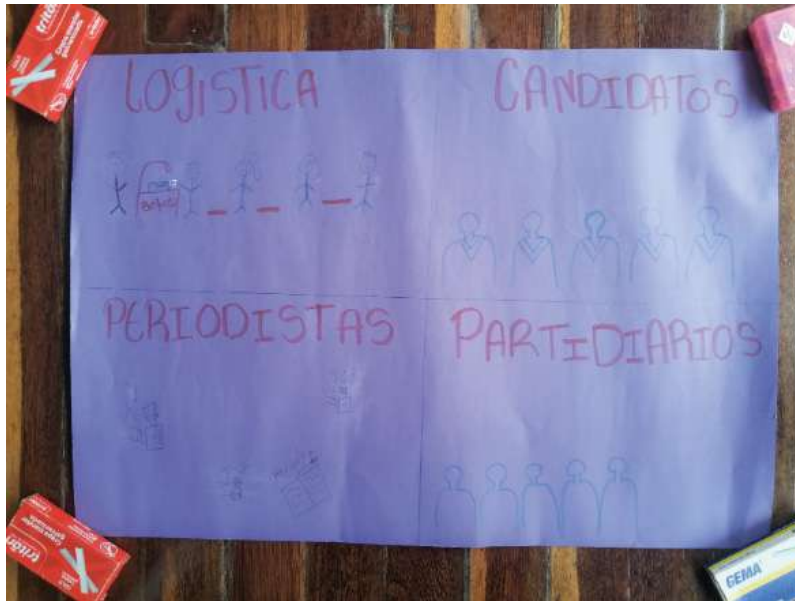 LOgISTICA
CANDIDATOS
PERIODISTAS
PARTIDIARIOS
tritón
tritón
GEMA